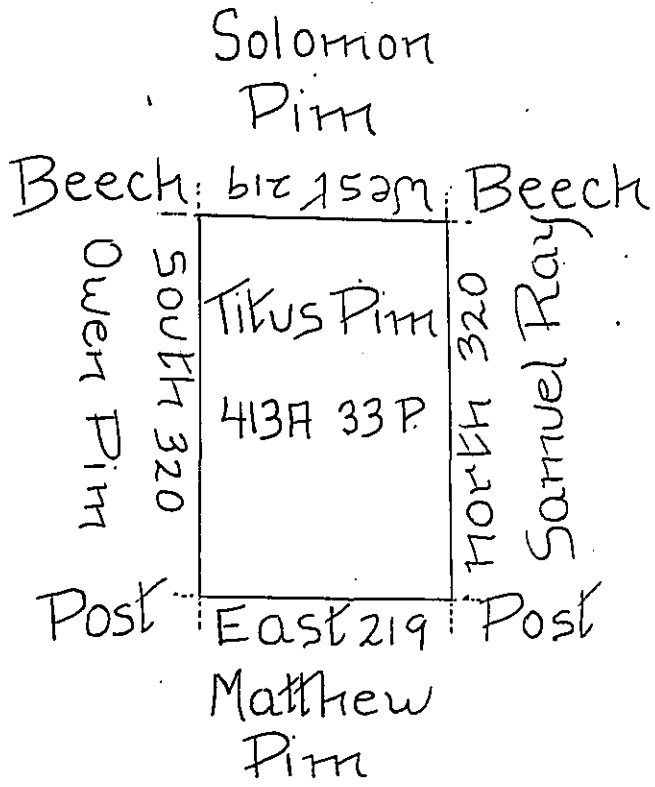 Solomon
Pim
Beech
West 219
Beech
Owen Pim
South 320
Titus Pim
413A 33P.
North 320
Samuel Ray
Post
East 219
Post
Matthew
Pim